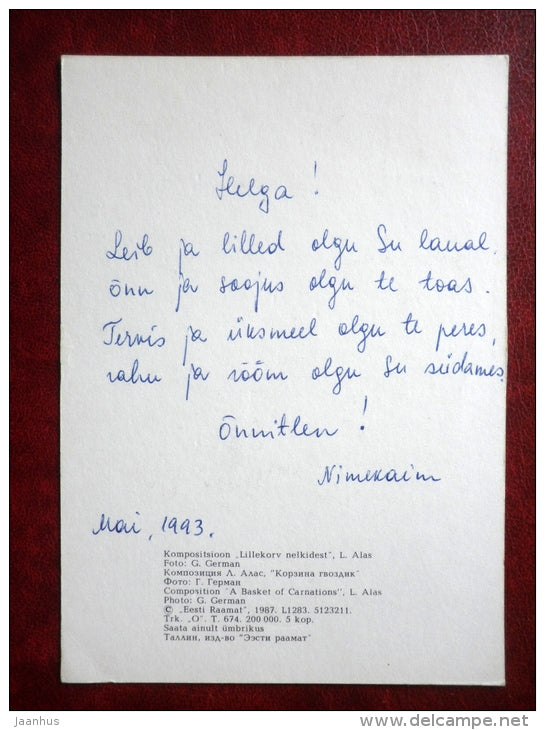 Helga !
Leib ja lilled olgu Su laual,
õnn ja soojus olgu te toas.
Tervis ja üksmeel olgu te peres,
rahu ja rõõm olgu Su südames.
Õnnitlen !
Nimekaim
Mai, 1993.
Kompositsioon „Lillekorv nelkidest", L. Alas
Foto: G. German
Композиция Л. Алас, "Корзина гвоздик"
Фото: Г. Герман
Composition "A Basket of Carnations", L. Alas
Photo: G. German
© „Eesti Raamat", 1987. L1283. 5123211.
Trk. „O". T. 674. 200 000. 5 kop.
Saata ainult ümbrikus
Таллин, изд-во "Ээсти раамат"
jaanhus
www.delcampe.net